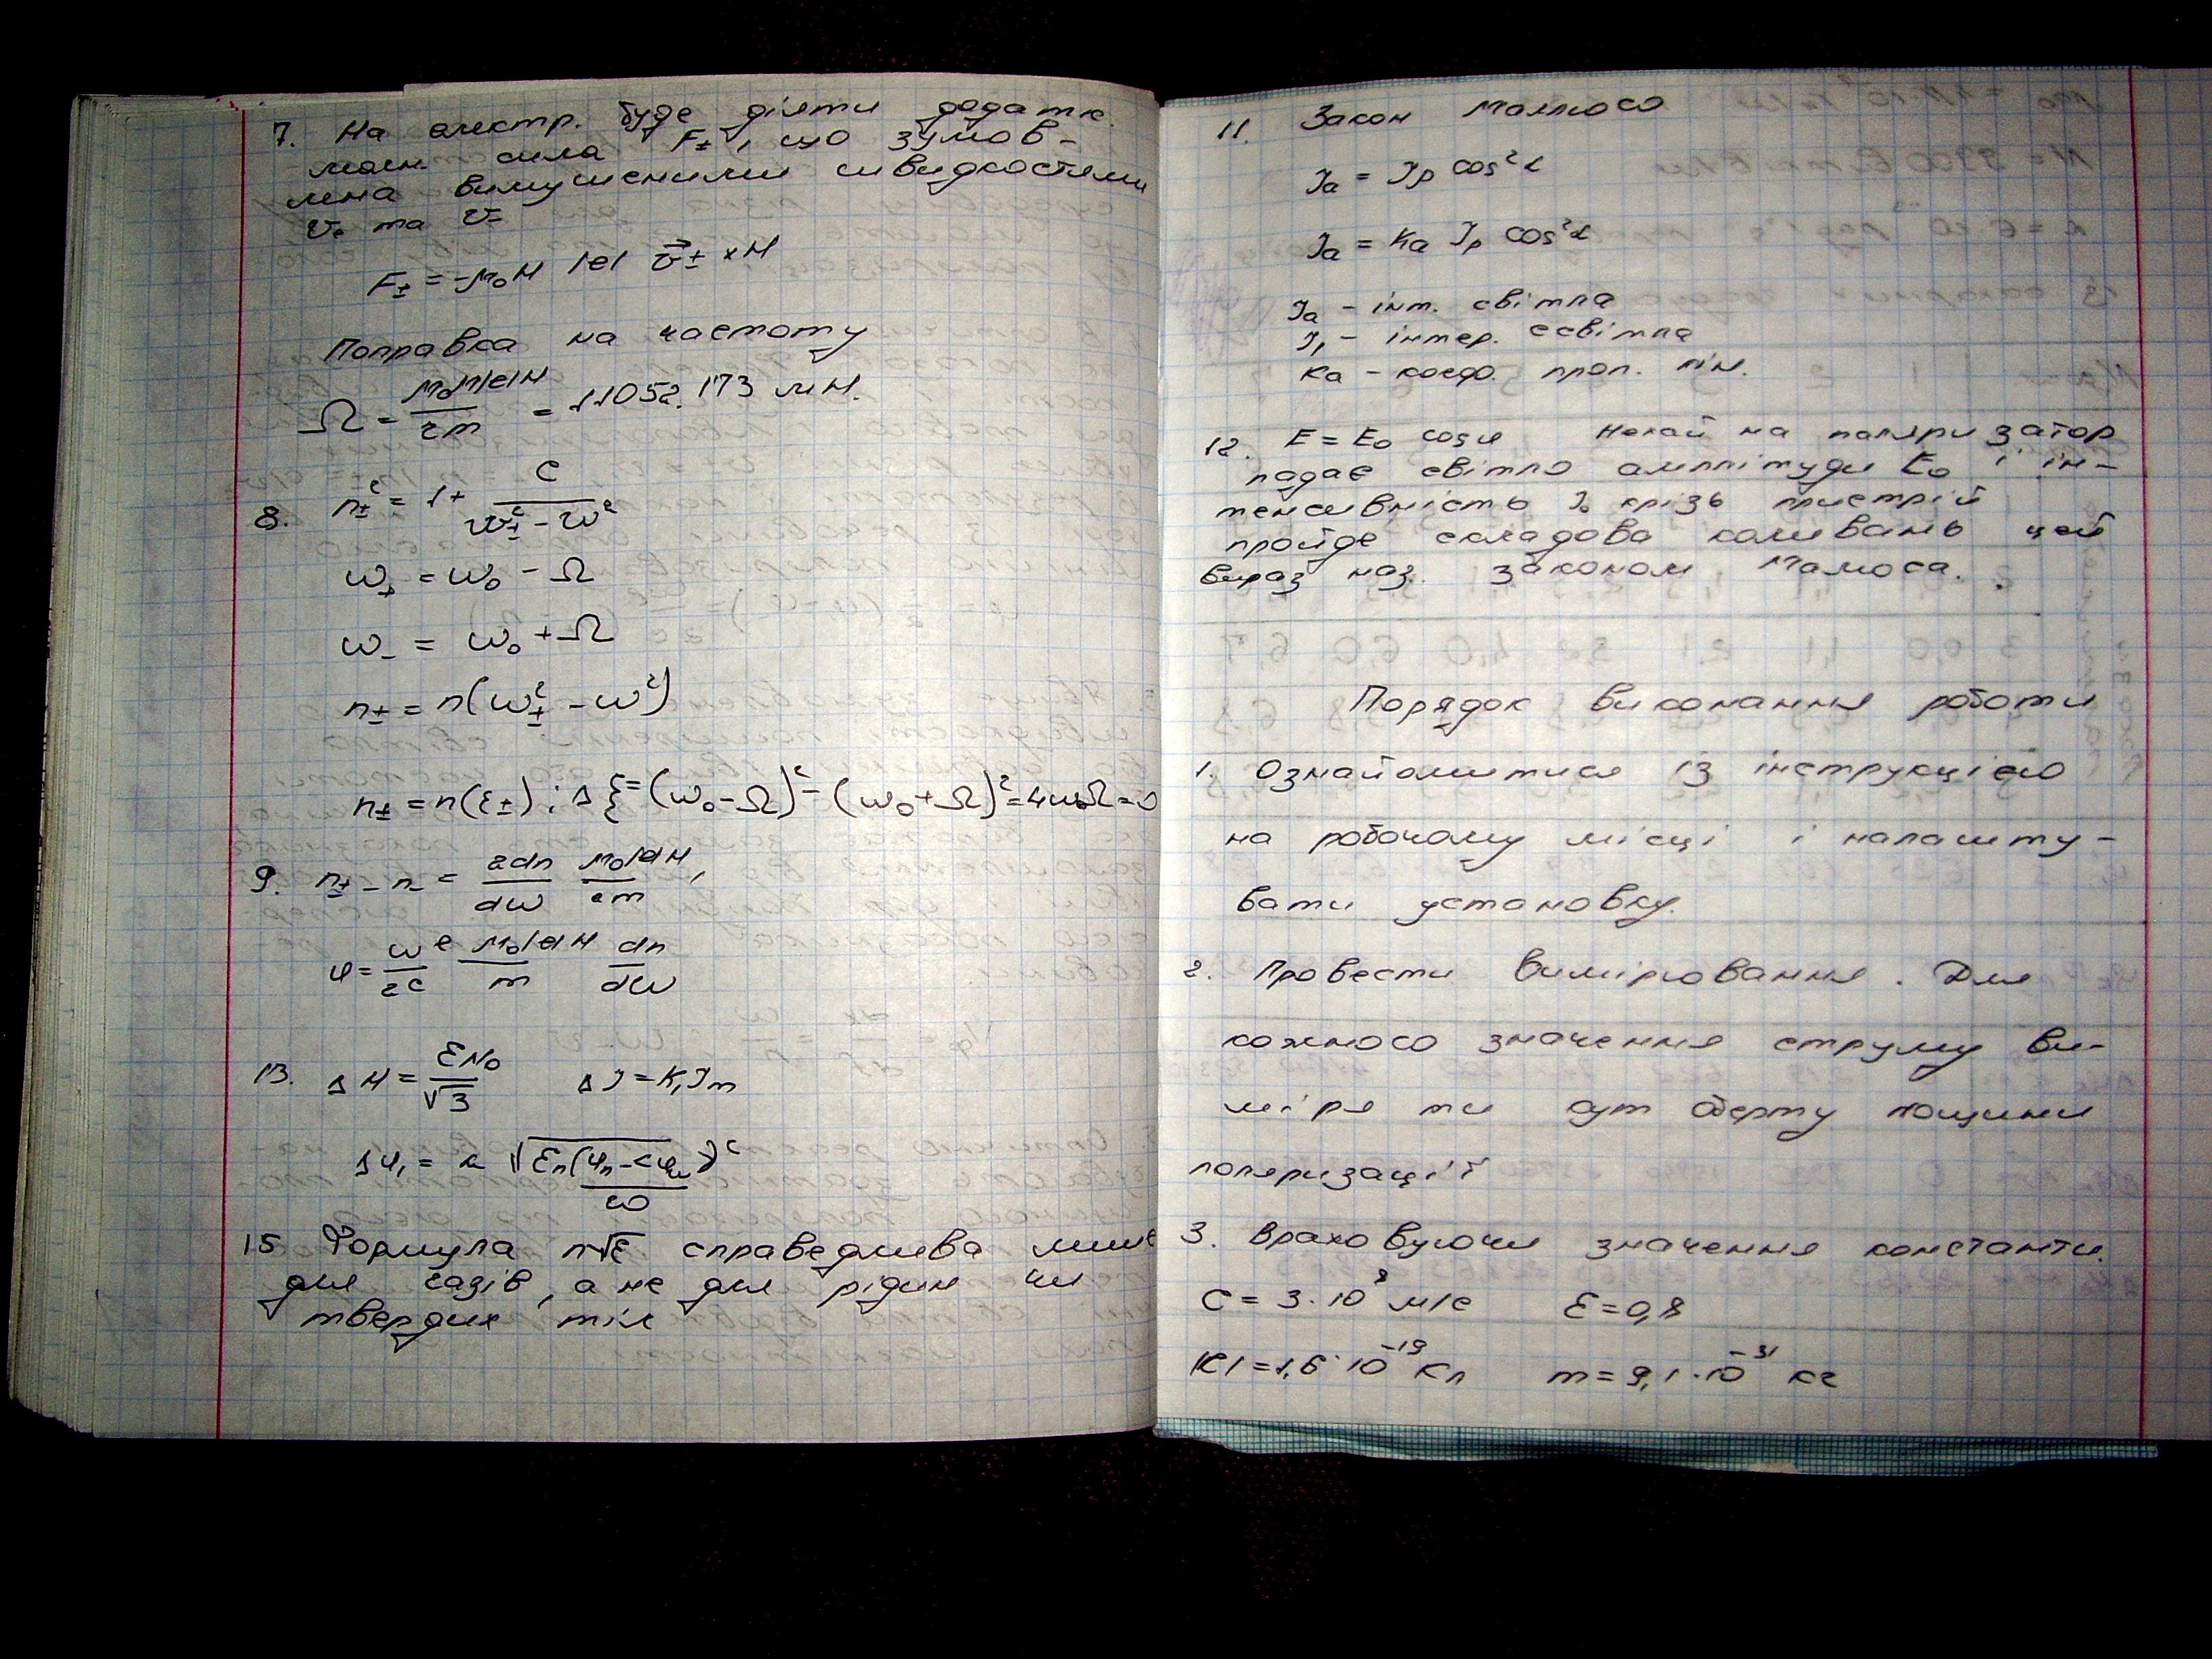 7. На електр. буде діяти додатк.
сила F± , що зумов-
лена вимушеними швидкостями
та
F± = -μ₀H |e| v⃗± × H
Поправка на частоту
Ω = μ₀|e|H / 2m = 11052.173 мН.
8. n±² = 1 + C / ω±² - ω²
ω₊ = ω₀ - Ω
ω₋ = ω₀ + Ω
n± = n(ω±² - ω²)
n± = n(ξ±) ; Δξ = (ω₀ - Ω)² - (ω₀ + Ω)² = 4ω₀Ω = 0
9. n₊ - n₋ = 2dn / dω μ₀|e|H / 2m ,
φ = ω e / 2c μ₀|e|H / m dn / dω
13. ΔH = εH₀ / √3 ΔJ = K₁Jm
Δφ₁ =
15 Формула n√ε справедлива лише
для газів, а не для рідин чи
твердих тіл
11. Закон Малюсо
Ja = Jp cos²α
Ja = Ka Jp cos²α
Ja - інт. світла
J₁ - інтер. світла
Ka - коеф. проп. лін.
12. E = E₀ cos φ Нехай на поляризатор
падає світло амплітуди E₀ і ін-
тенсивність J₀ крізь пристрій
пройде складова коливань цей
вираз наз. законом Малюса.
Порядок виконання роботи
1. Ознайомитися із інструкцією
на робочому місці і налашту-
вати установку.
2. Провести вимірювання. Для
кожного значення струму ви-
міряти кут оберту площини
поляризації
3. Враховуючи значення константи.
C = 3·10⁸ м/с ε = 0,8
|e| = 1,6·10⁻¹⁹ Кл m = 9,1·10⁻³¹ кг